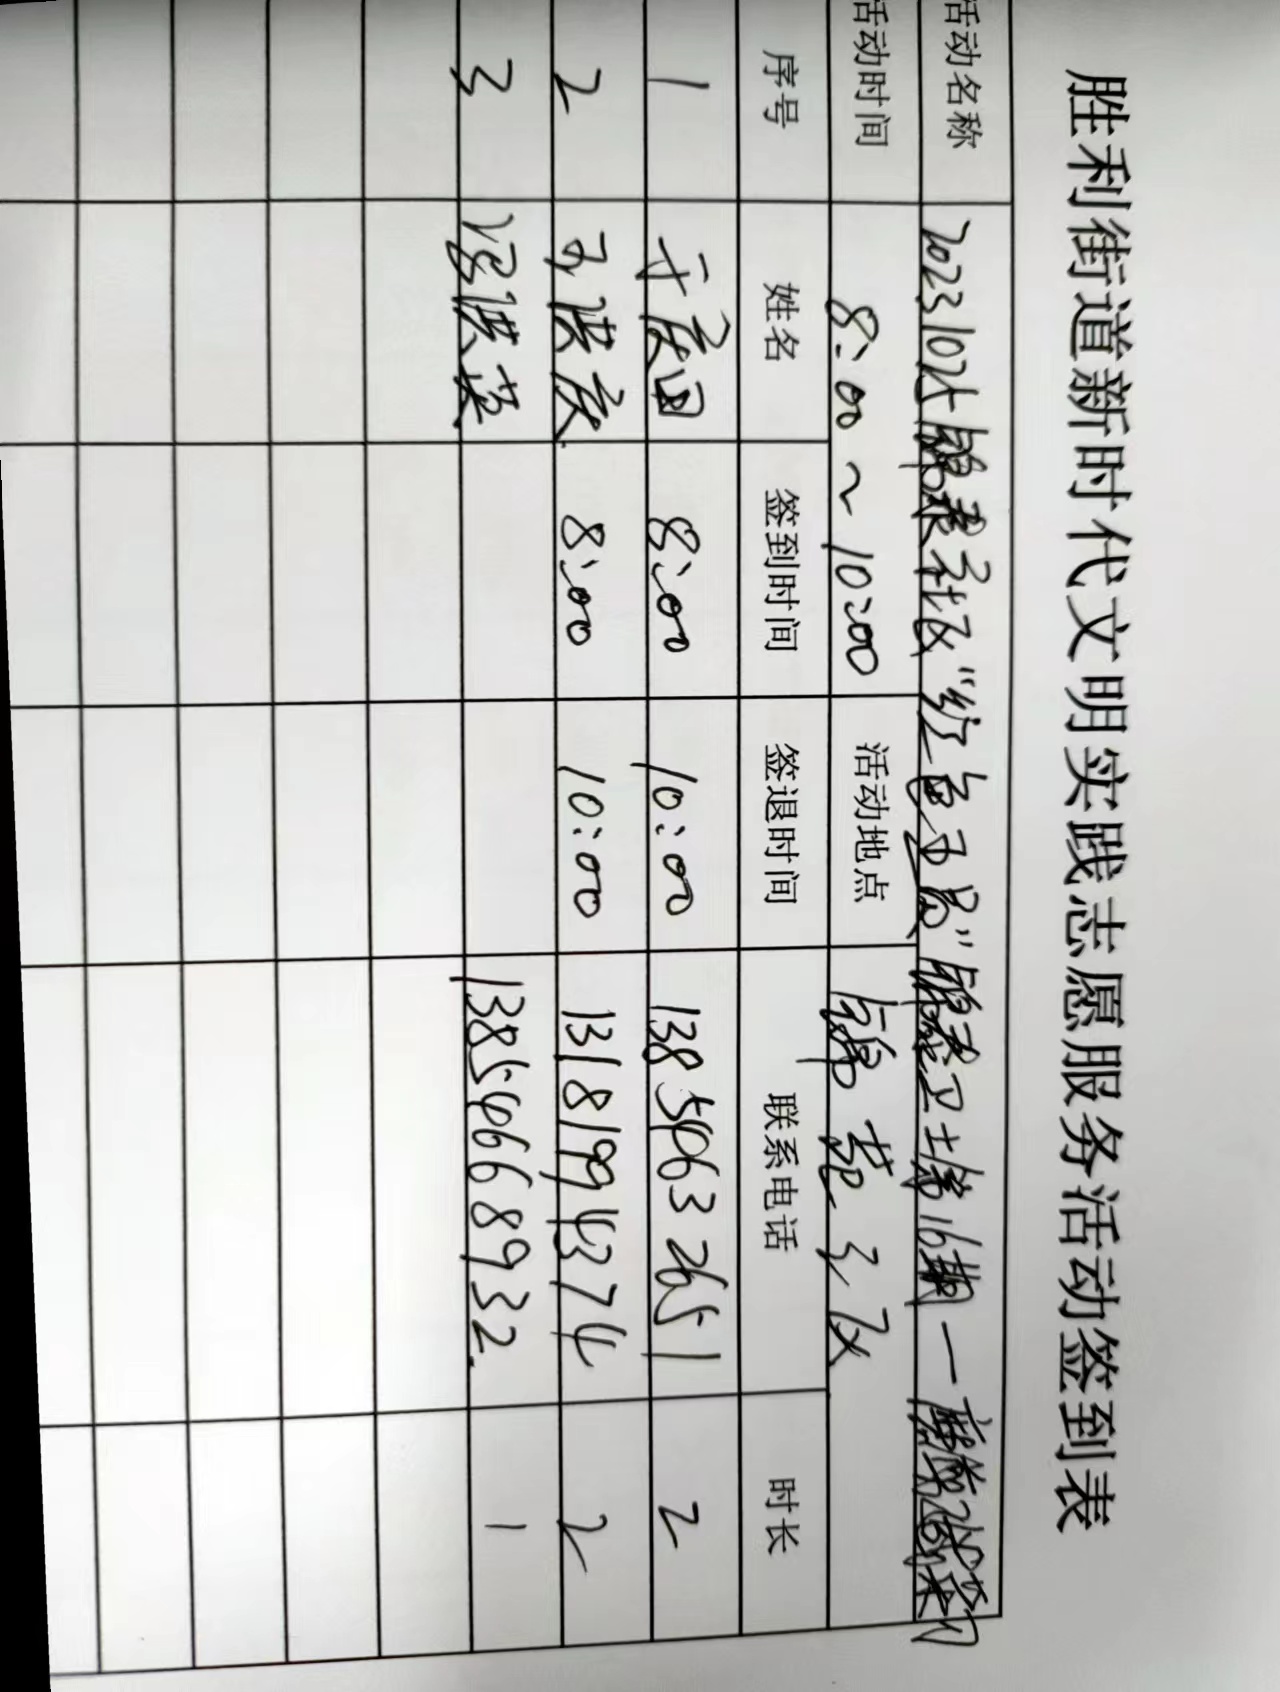 胜利街道新时代文明实践志愿服务活动签到表
活动名称 2023102 锦苑社区"红色" 锦苑卫士第16期—
活动时间 8:00~10:00 活动地点 锦苑三区
序号 姓名 签到时间 签退时间 联系电话 时长
1 8:00 10:00 13854632651 2
2 洪 8:00 10:00 13181994374 2
3 洪英 13854668932 1